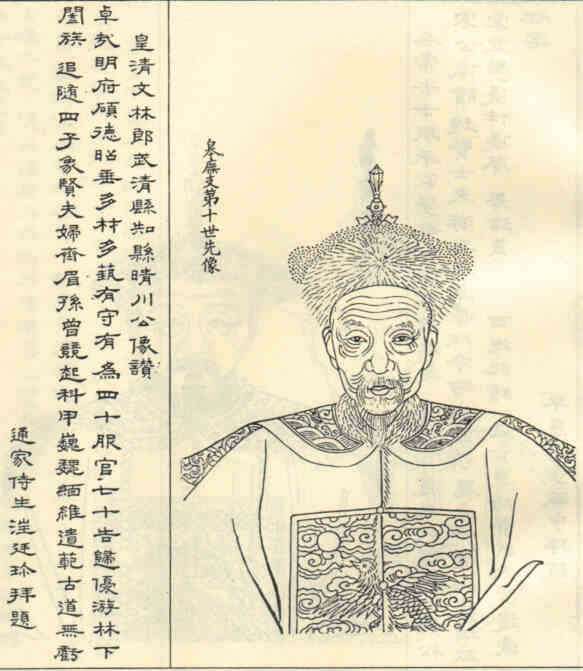 皋廡支第十世先像
皇清文林郎武清縣知縣晴川公像讚
卓哉明府碩德昭垂多材多藝有守有為四十服官七十告歸優游林下
闔族追隨四子象賢夫婦齊眉孫曾競起科甲巍巍緬維遺範古道無虧
通家侍生汪廷珍拜題